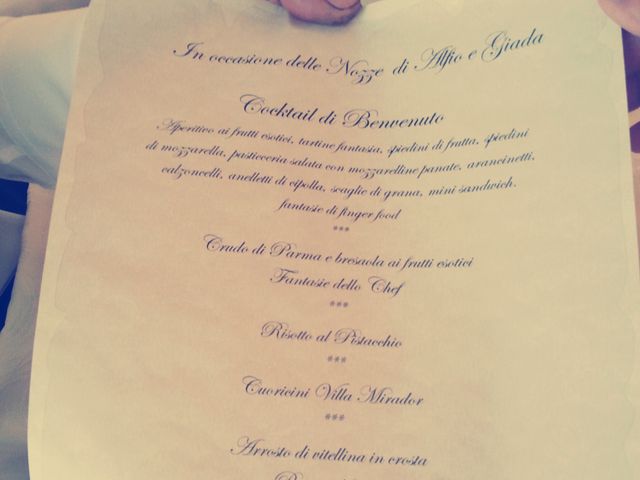 In occasione delle Nozze di Alfio e Giada
Cocktail di Benvenuto
Aperitivo ai frutti esotici, tartine fantasia, spiedini di frutta, spiedini
di mozzarella, pasticceria salata con mozzarelline panate, arancinetti,
calzoncelli, anelletti di cipolla, scaglie di grana, mini sandwich.
fantasie di finger food
***
Crudo di Parma e bresaola ai frutti esotici
Fantasie dello Chef
***
Risotto al Pistacchio
***
Cuoricini Villa Mirador
***
Arrosto di vitellina in crosta